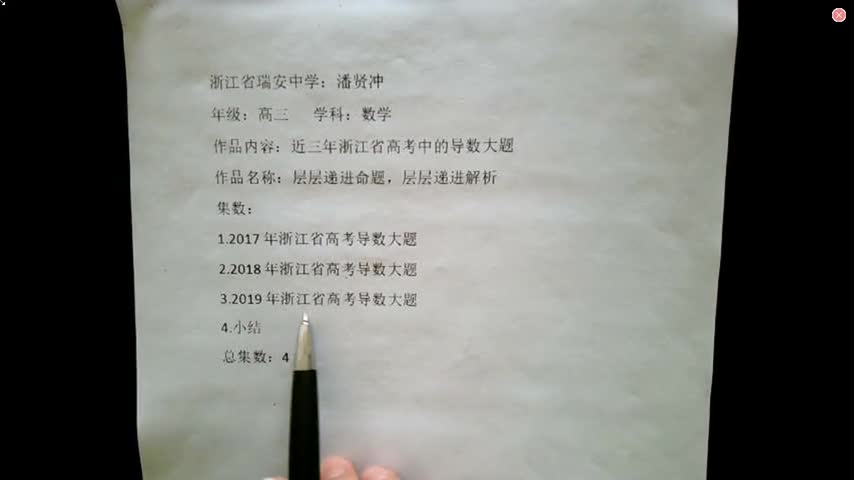 浙江省瑞安中学：潘贤冲
年级：高三 学科：数学
作品内容：近三年浙江省高考中的导数大题
作品名称：层层递进命题，层层递进解析
集数：
1.2017 年浙江省高考导数大题
2.2018 年浙江省高考导数大题
3.2019 年浙江省高考导数大题
4.小结
总集数：4